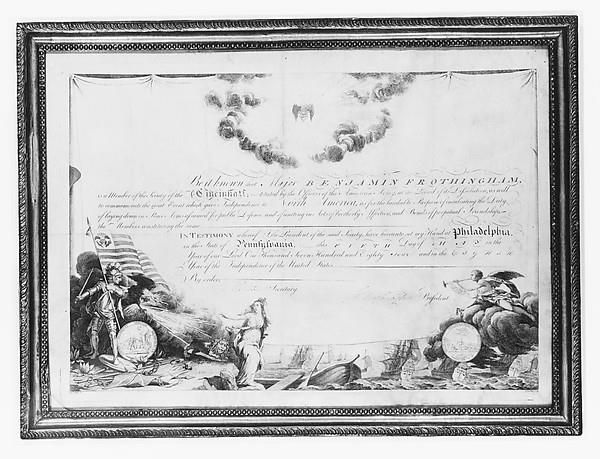 Be it known that Major BENJAMIN FROTHINGHAM,
is a Member of the Society of the Cincinnati; instituted by the Officers of the American Army, at the Period of its Dissolution, as well
to commemorate the great Event which gave Independence to North America, as for the laudable Purpose of inculcating the Duty,
of laying down in Peace Arms assumed for public Defence, and of uniting in Acts of brotherly Affection, and Bonds of perpetual Friendship,
the Members constituting the same
IN TESTIMONY whereof I the President of the said Society, have hereunto set my Hand at Philadelphia.
in the State of Pennsylvania. this FIFTH Day of MAY in the
Year of our Lord One Thousand Seven Hundred and Eighty Four and in the EIGHTH
Year of the Independence of the United States.
By order,
Secretary.
President